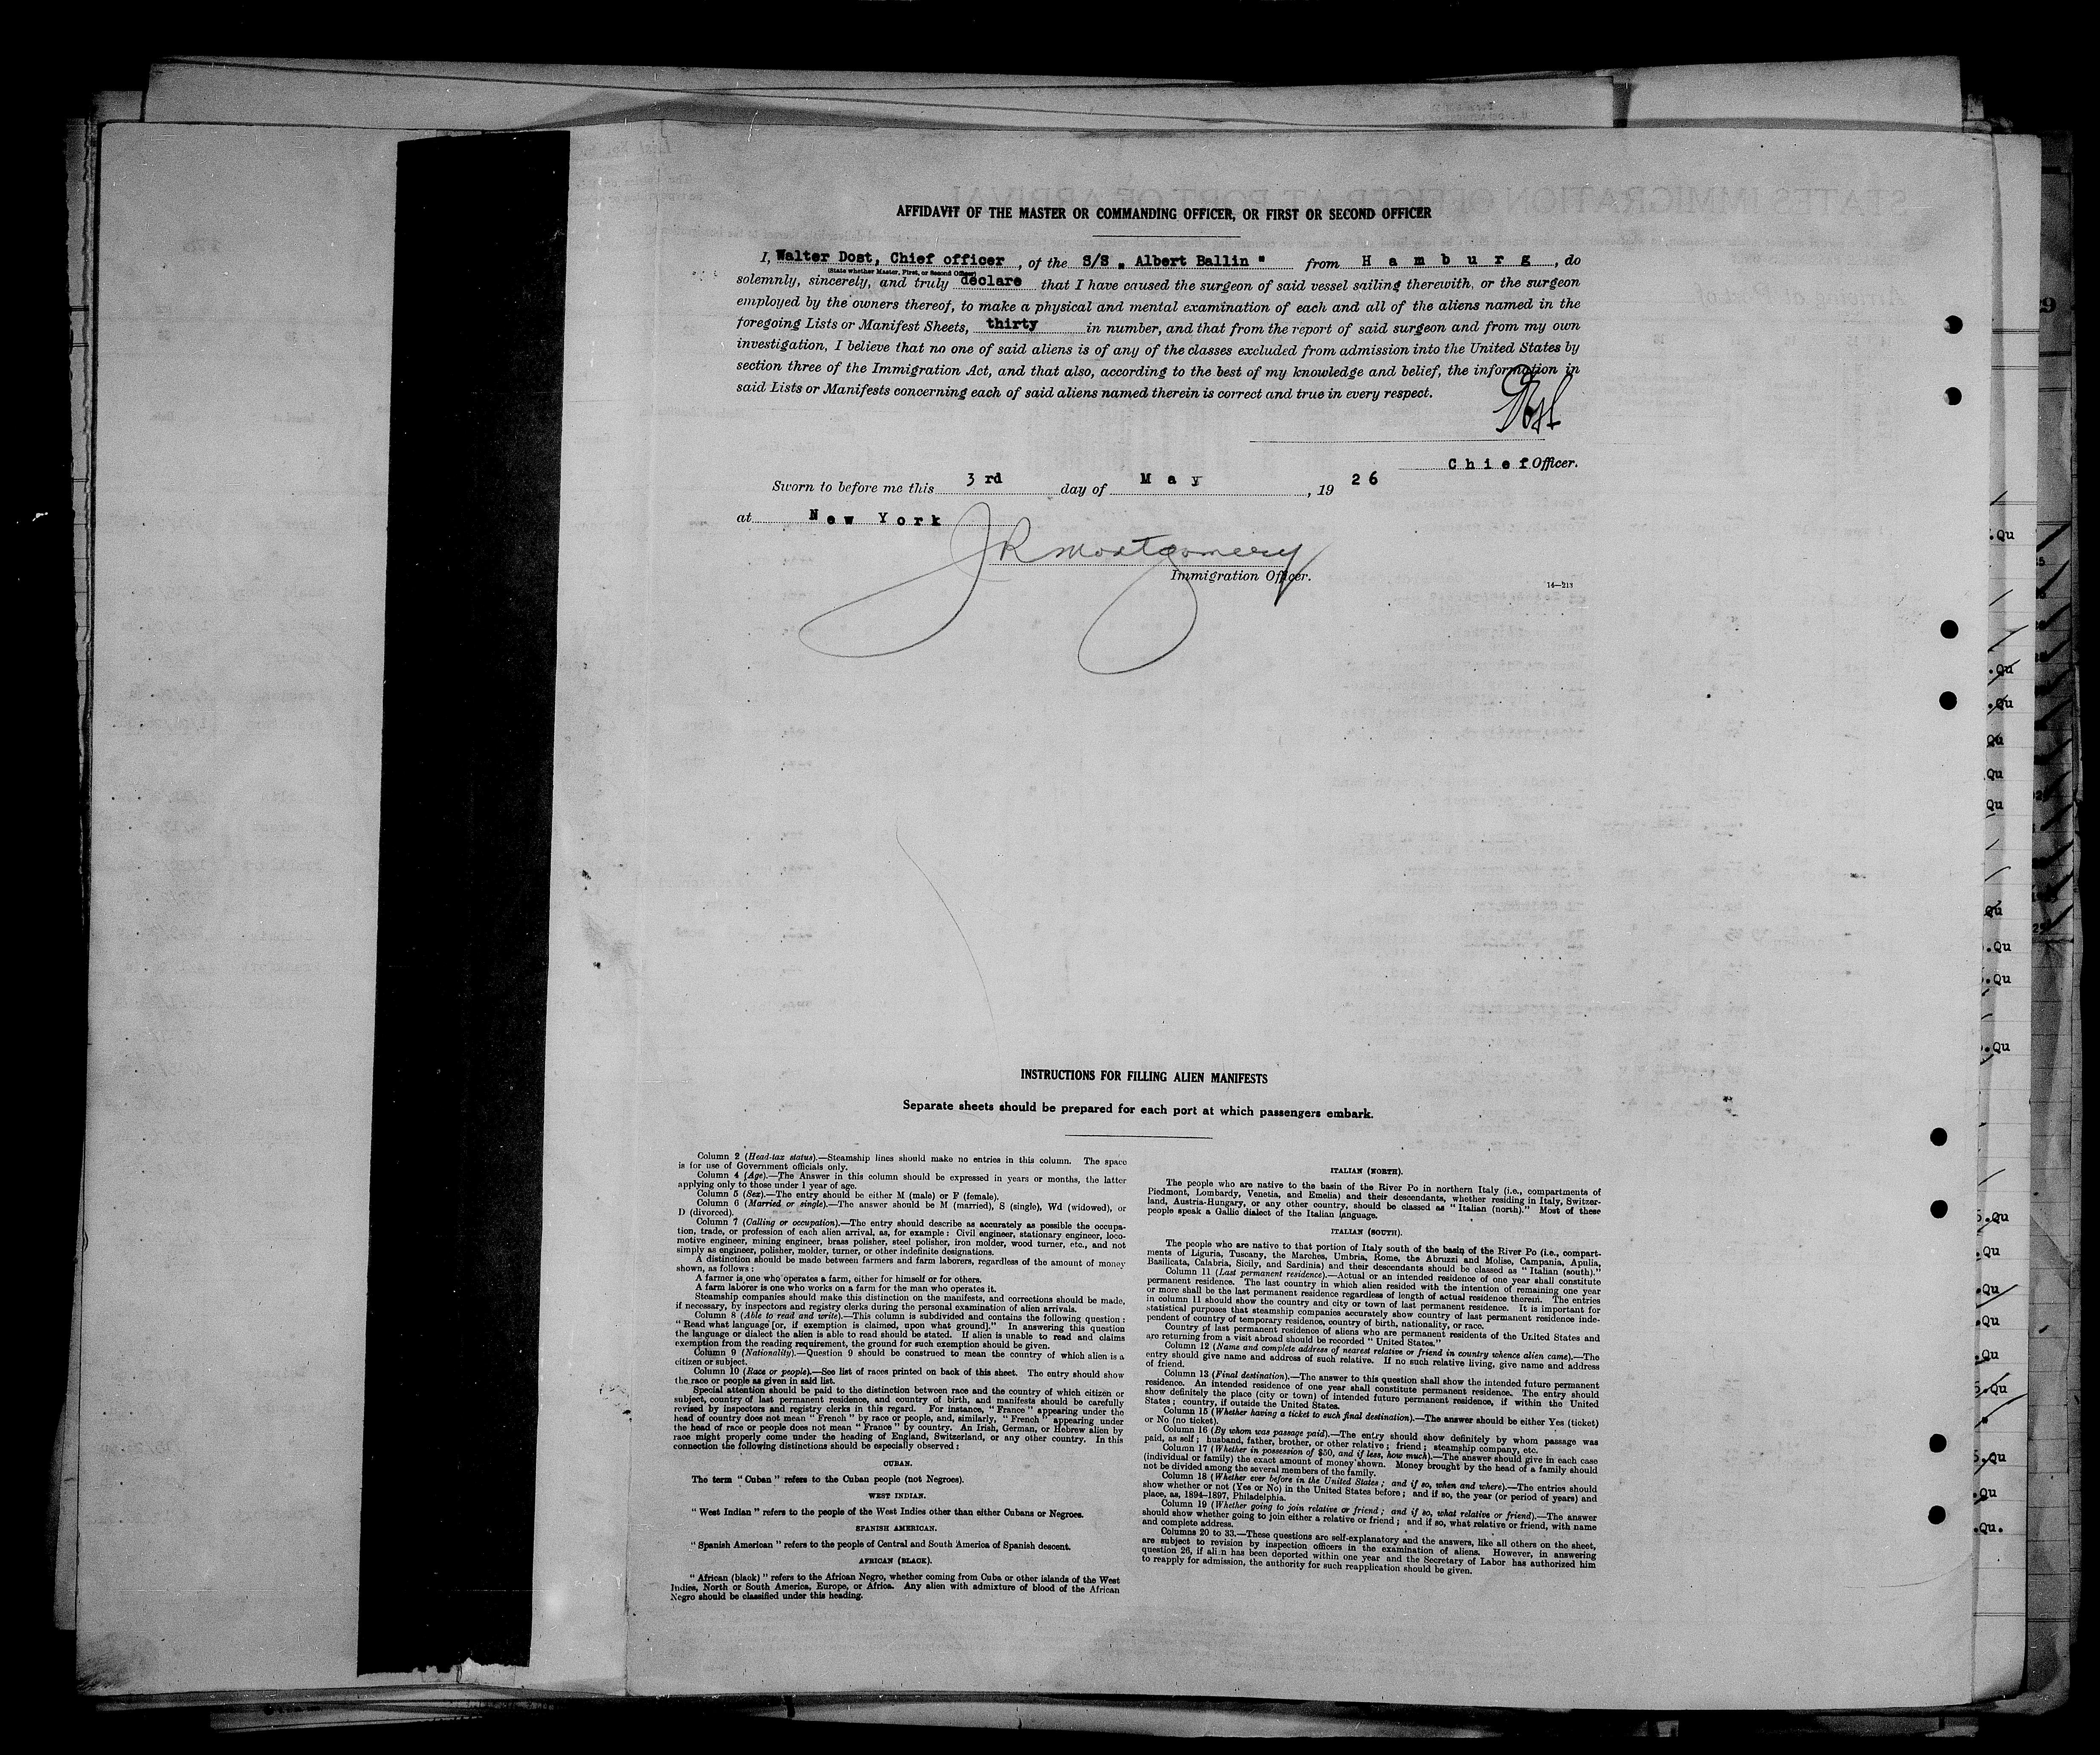 AFFIDAVIT OF THE MASTER OR COMMANDING OFFICER, OR FIRST OR SECOND OFFICER
I, Walter Dost, Chief officer, of the S/S „ Albert Ballin " from Hamburg, do
(State whether Master, First, or Second Officer)
solemnly, sincerely, and truly declare that I have caused the surgeon of said vessel sailing therewith, or the surgeon
employed by the owners thereof, to make a physical and mental examination of each and all of the aliens named in the
foregoing Lists or Manifest Sheets, thirty in number, and that from the report of said surgeon and from my own
investigation, I believe that no one of said aliens is of any of the classes excluded from admission into the United States by
section three of the Immigration Act, and that also, according to the best of my knowledge and belief, the information in
said Lists or Manifests concerning each of said aliens named therein is correct and true in every respect.
Dost
Chief Officer.
Sworn to before me this 3rd day of May, 1926
at New York
J R Montgomery
Immigration Officer.
14—213
INSTRUCTIONS FOR FILLING ALIEN MANIFESTS
Separate sheets should be prepared for each port at which passengers embark.
Column 2 (Head-tax status).—Steamship lines should make no entries in this column. The space
is for use of Government officials only.
Column 4 (Age).—The Answer in this column should be expressed in years or months, the latter
applying only to those under 1 year of age.
Column 5 (Sex).—The entry should be either M (male) or F (female).
Column 6 (Married or single).—The answer should be M (married), S (single), Wd (widowed), or
D (divorced).
Column 7 (Calling or occupation).—The entry should describe as accurately as possible the occupa-
tion, trade, or profession of each alien arrival, as, for example: Civil engineer, stationary engineer, loco-
motive engineer, mining engineer, brass polisher, steel polisher, iron molder, wood turner, etc., and not
simply as engineer, polisher, molder, turner, or other indefinite designations.
A distinction should be made between farmers and farm laborers, regardless of the amount of money
shown, as follows:
A farmer is one who operates a farm, either for himself or for others.
A farm laborer is one who works on a farm for the man who operates it.
Steamship companies should make this distinction on the manifests, and corrections should be made,
if necessary, by inspectors and registry clerks during the personal examination of alien arrivals.
Column 8 (Able to read and write).—This column is subdivided and contains the following question:
"Read what language [or, if exemption is claimed, upon what ground]." In answering this question
the language or dialect the alien is able to read should be stated. If alien is unable to read and claims
exemption from the reading requirement, the ground for such exemption should be given.
Column 9 (Nationality).—Question 9 should be construed to mean the country of which alien is a
citizen or subject.
Column 10 (Race or people).—See list of races printed on back of this sheet. The entry should show
the race or people as given in said list.
Special attention should be paid to the distinction between race and the country of which citizen or
subject, country of last permanent residence, and country of birth, and manifests should be carefully
revised by inspectors and registry clerks in this regard. For instance, "France" appearing under the
head of country does not mean "French" by race or people, and, similarly, "French" appearing under
the head of race or people does not mean "France" by country. An Irish, German, or Hebrew alien by
race might properly come under the heading of England, Switzerland, or any other country. In this
connection the following distinctions should be especially observed:
CUBAN.
The term "Cuban" refers to the Cuban people (not Negroes).
WEST INDIAN.
"West Indian" refers to the people of the West Indies other than either Cubans or Negroes.
SPANISH AMERICAN.
"Spanish American" refers to the people of Central and South America of Spanish descent.
AFRICAN (BLACK).
"African (black)" refers to the African Negro, whether coming from Cuba or other islands of the West
Indies, North or South America, Europe, or Africa. Any alien with admixture of blood of the African
Negro should be classified under this heading.
ITALIAN (NORTH).
The people who are native to the basin of the River Po in northern Italy (i.e., compartments of
Piedmont, Lombardy, Venetia, and Emelia) and their descendants, whether residing in Italy, Switzer-
land, Austria-Hungary, or any other country, should be classed as "Italian (north)." Most of these
people speak a Gallic dialect of the Italian language.
ITALIAN (SOUTH).
The people who are native to that portion of Italy south of the basin of the River Po (i.e., compart-
ments of Liguria, Tuscany, the Marches, Umbria, Rome, the Abruzzi and Molise, Campania, Apulia,
Basilicata, Calabria, Sicily, and Sardinia) and their descendants should be classed as "Italian (south)."
Column 11 (Last permanent residence).—Actual or an intended residence of one year shall constitute
permanent residence. The last country in which alien resided with the intention of remaining one year
or more shall be the last permanent residence regardless of length of actual residence therein. The entries
in column 11 should show the country and city or town of last permanent residence. It is important for
statistical purposes that steamship companies accurately show country of last permanent residence inde-
pendent of country of temporary residence, country of birth, nationality, or race.
Country of last permanent residence of aliens who are permanent residents of the United States and
are returning from a visit abroad should be recorded "United States."
Column 12 (Name and complete address of nearest relative or friend in country whence alien came).—The
entry should give name and address of such relative. If no such relative living, give name and address
of friend.
Column 13 (Final destination).—The answer to this question shall show the intended future permanent
residence. An intended residence of one year shall constitute permanent residence. The entry should
show definitely the place (city or town) of intended future permanent residence, if within the United
States; country, if outside the United States.
Column 15 (Whether having a ticket to such final destination).—The answer should be either Yes (ticket)
or No (no ticket).
Column 16 (By whom was passage paid).—The entry should show definitely by whom passage was
paid, as self; husband, father, brother, or other relative; friend; steamship company, etc.
Column 17 (Whether in possession of $50, and if less, how much).—The answer should give in each case
(individual or family) the exact amount of money shown. Money brought by the head of a family should
not be divided among the several members of the family.
Column 18 (Whether ever before in the United States; and if so, when and where).—The entries should
show whether or not (Yes or No) in the United States before; and if so, the year (or period of years) and
place, as, 1894-1897, Philadelphia.
Column 19 (Whether going to join relative or friend; and if so, what relative or friend).—The answer
should show whether going to join either a relative or friend; and if so, what relative or friend, with name
and complete address.
Columns 20 to 33.—These questions are self-explanatory and the answers, like all others on the sheet,
are subject to revision by inspection officers in the examination of aliens. However, in answering
question 26, if alien has been deported within one year and the Secretary of Labor has authorized him
to reapply for admission, the authority for such reapplication should be given.